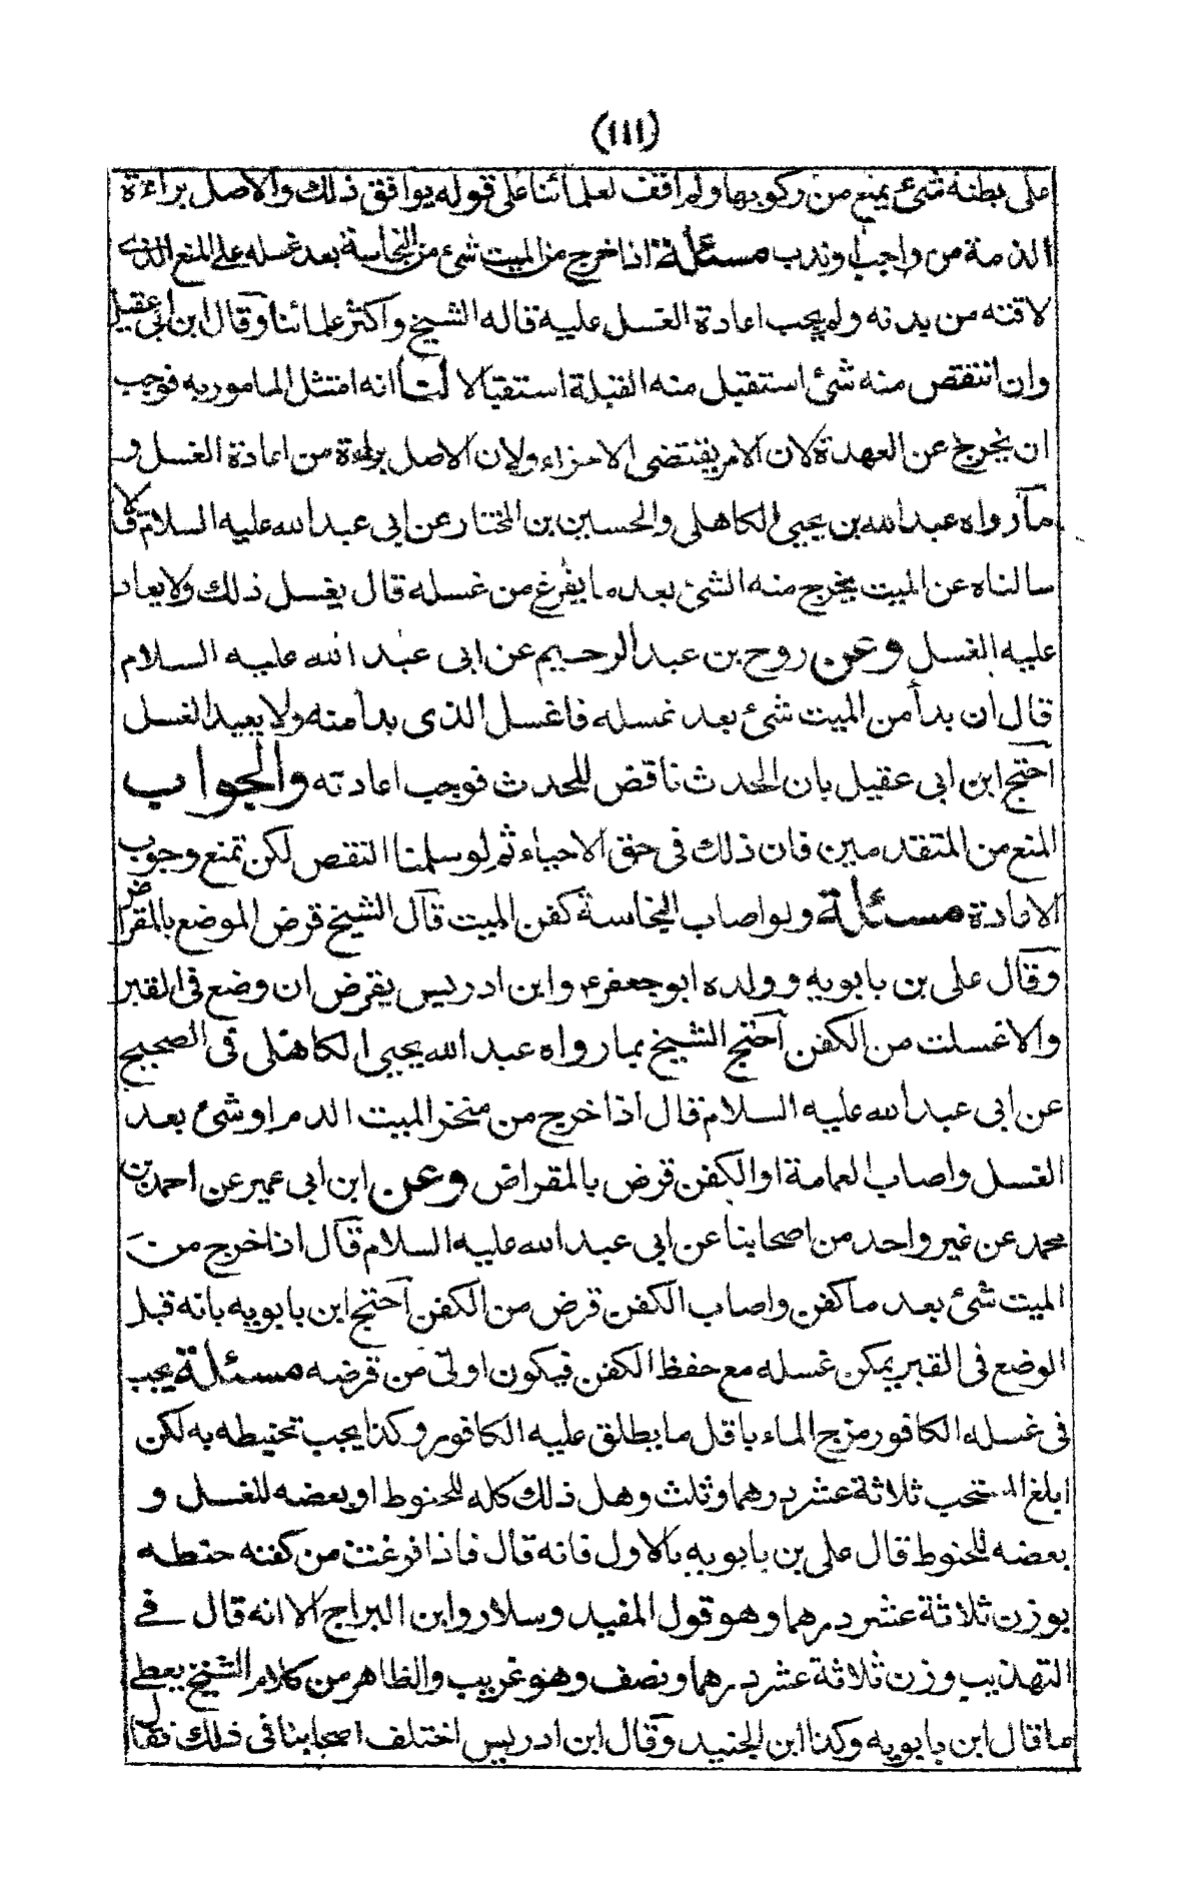 (١١١)
على بطنه شئ يمنع من ركوبها ولم اقف لعلمائنا على قوله يوافق ذلك والاصل براءة
الذمة من واجب او ندب مسئلة اذا خرج من الميت شئ من النجاسة بعد غسله على المنع الذى
لاقته من بدنه ولم يجب اعادة الغسل عليه قاله الشيخ واكثر علمائنا وقال ابن ابى عقيل
وان انتقض منه شئ استقبل منه القبلة استقبالا لنا انه امتثل المامور به فوجب
ان يخرج عن العهدة لان الامر يقتضى الاجزاء ولان الاصل براءة من اعادة الغسل و
ما رواه عبد الله بن يحيى الكاهلى والحسين بن المختار عن ابى عبد الله عليه السلام قالا
سالناه عن الميت يخرج منه الشئ بعد ما يفرغ من غسله قال يغسل ذلك ولا يعاد
عليه الغسل وعن روح بن عبد الرحيم عن ابى عبد الله عليه السلام
قال ان بدأ من الميت شئ بعد غسله فاغسل الذى بدأ منه ولا يعيد الغسل
احتج ابن ابى عقيل بان الحدث ناقض للحدث فوجب اعادته والجواب
المنع من المتقدمين فان ذلك فى حق الاحياء ثم لو سلمنا النقص لكن تمنع وجوب
الاعادة مسئلة ولو اصاب النجاسة كفن الميت قال الشيخ قرض الموضع بالمقراض
وقال على بن بابويه وولده ابو جعفر ع وابن ادريس يقرض ان وضع فى القبر
والا غسلت من الكفن احتج الشيخ بما رواه عبد الله يحيى الكاهلى فى الصحيح
عن ابى عبد الله عليه السلام قال اذا خرج من منخر الميت الدم او شئ بعد
الغسل واصاب العمامة او الكفن قرض بالمقراض وعن ابن ابى عمير عن احمد بن
محمد عن غير واحد من اصحابنا عن ابى عبد الله عليه السلام قال اذا خرج من
الميت شئ بعد ما كفن واصاب الكفن قرض من الكفن احتج ابن بابويه بانه قبل
الوضع فى القبر يمكن غسله مع حفظ الكفن فيكون اولى من قرضه مسئلة يجب
فى غسله الكافور مزج الماء باقل ما يطلق عليه الكافور وكذا يجب تحنيطه به لكن
ابلغ المستحب ثلاثة عشر درهما وثلث وهل ذلك كله للحنوط او بعضه للغسل و
بعضه للحنوط قال على بن بابويه بالاول فانه قال فاذا فرغت من كفنه حنطه
بوزن ثلاثة عشر درهما وهو قول المفيد وسلار وابن البراج الا انه قال فى
التهذيب وزن ثلاثة عشر درهما ونصف وهو غريب والظاهر من كلام الشيخ يعطى
ما قال ابن بابويه وكذا ابن الجنيد وقال ابن ادريس اختلف اصحابنا فى ذلك فقال